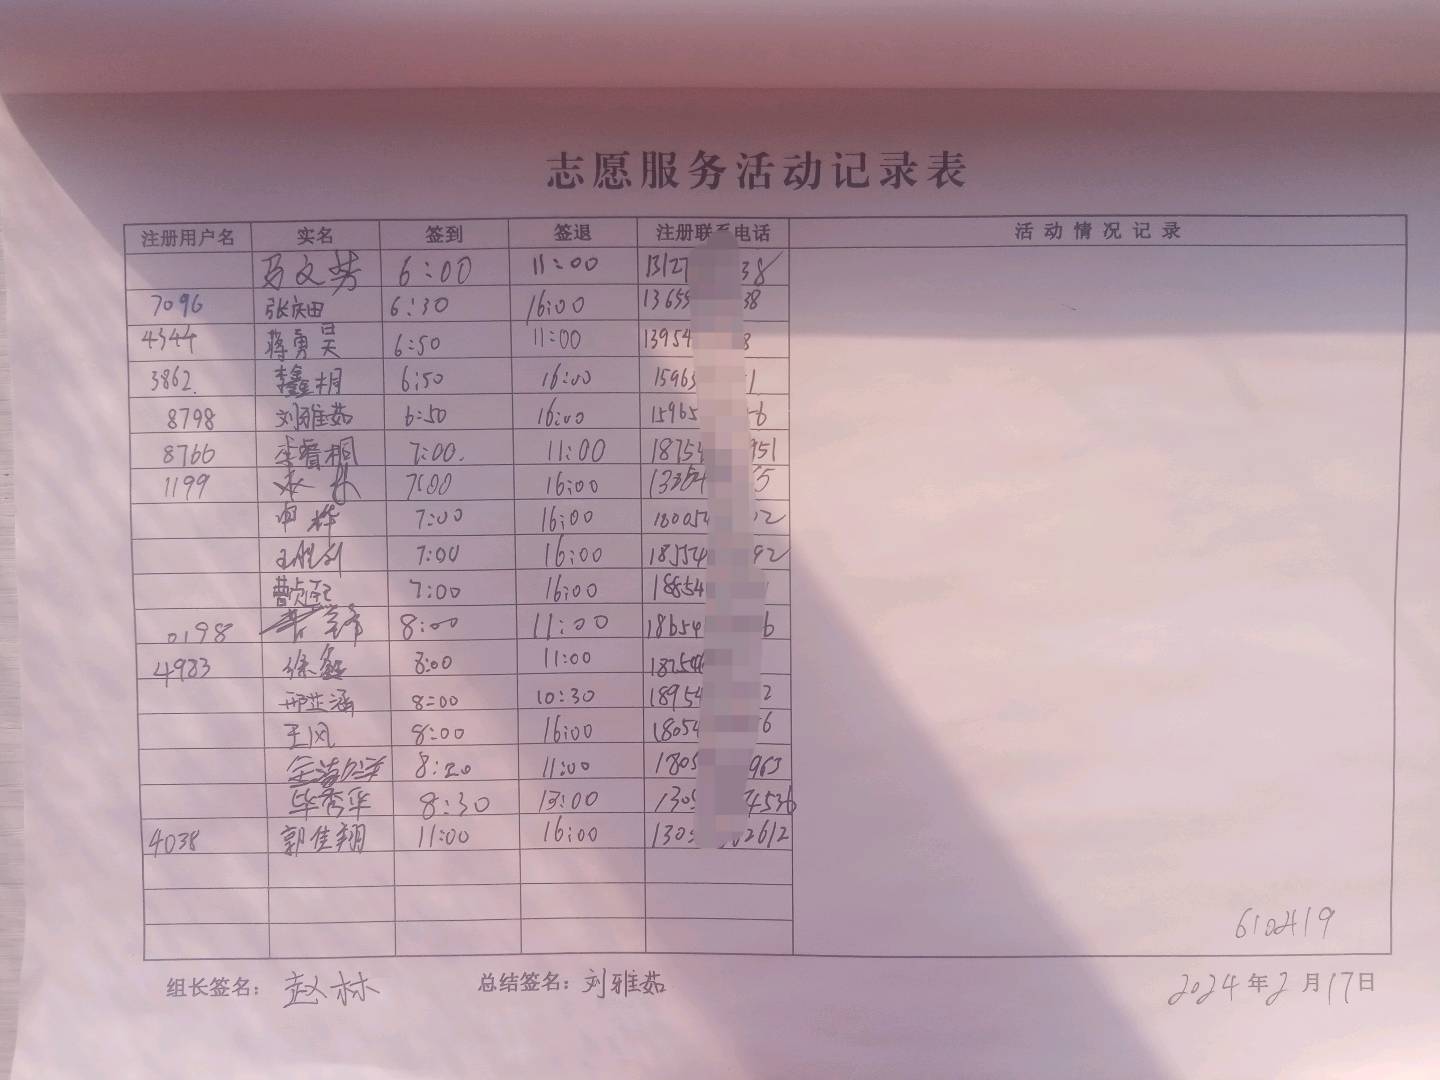 志愿服务活动记录表
注册用户名 实名 签到 签退 注册联系电话 活动情况记录
马文芳 6:00 11:00 13127 38
7096 张庆田 6:30 16:00 13655 38
4344 蒋勇昊 6:50 11:00 13954 8
3862. 李鑫桐 6:50 16:00 15963 1
8798 刘雅茹 6:50 16:00 15965 6
8766 李睿桐 7:00. 11:00 18754 951
1199 7:00 16:00 13354 5
申桦 7:00 16:00 18005 2
王胜利 7:00 16:00 18554 92
曹贞玉 7:00 16:00 18854
0198 8:00 11:00 18654 6
4983 徐鑫 8:00 11:00 18254
邢芷涵 8:00 10:30 18954 2
王风 8:00 16:00 18054 6
8:20 11:00 1805 963
毕秀华 8:30 13:00 1305 4536
4038 郭佳翔 11:00 16:00 1305 2612
610219
组长签名： 赵林 总结签名：刘雅茹 2024年2月17日